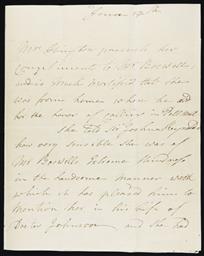 Mrs Abington presents her
Compliments to Mr Boswell
and is much mortified that she
was from home when he did
her the honor of calling in Pall Mall
she told Sir Joshua Reynolds
how very sensible she was of
Mr Boswells Extreme kindness
in the handsome manner with
which it has pleased him to
mention her in his Life of
Doctor Johnson and she had